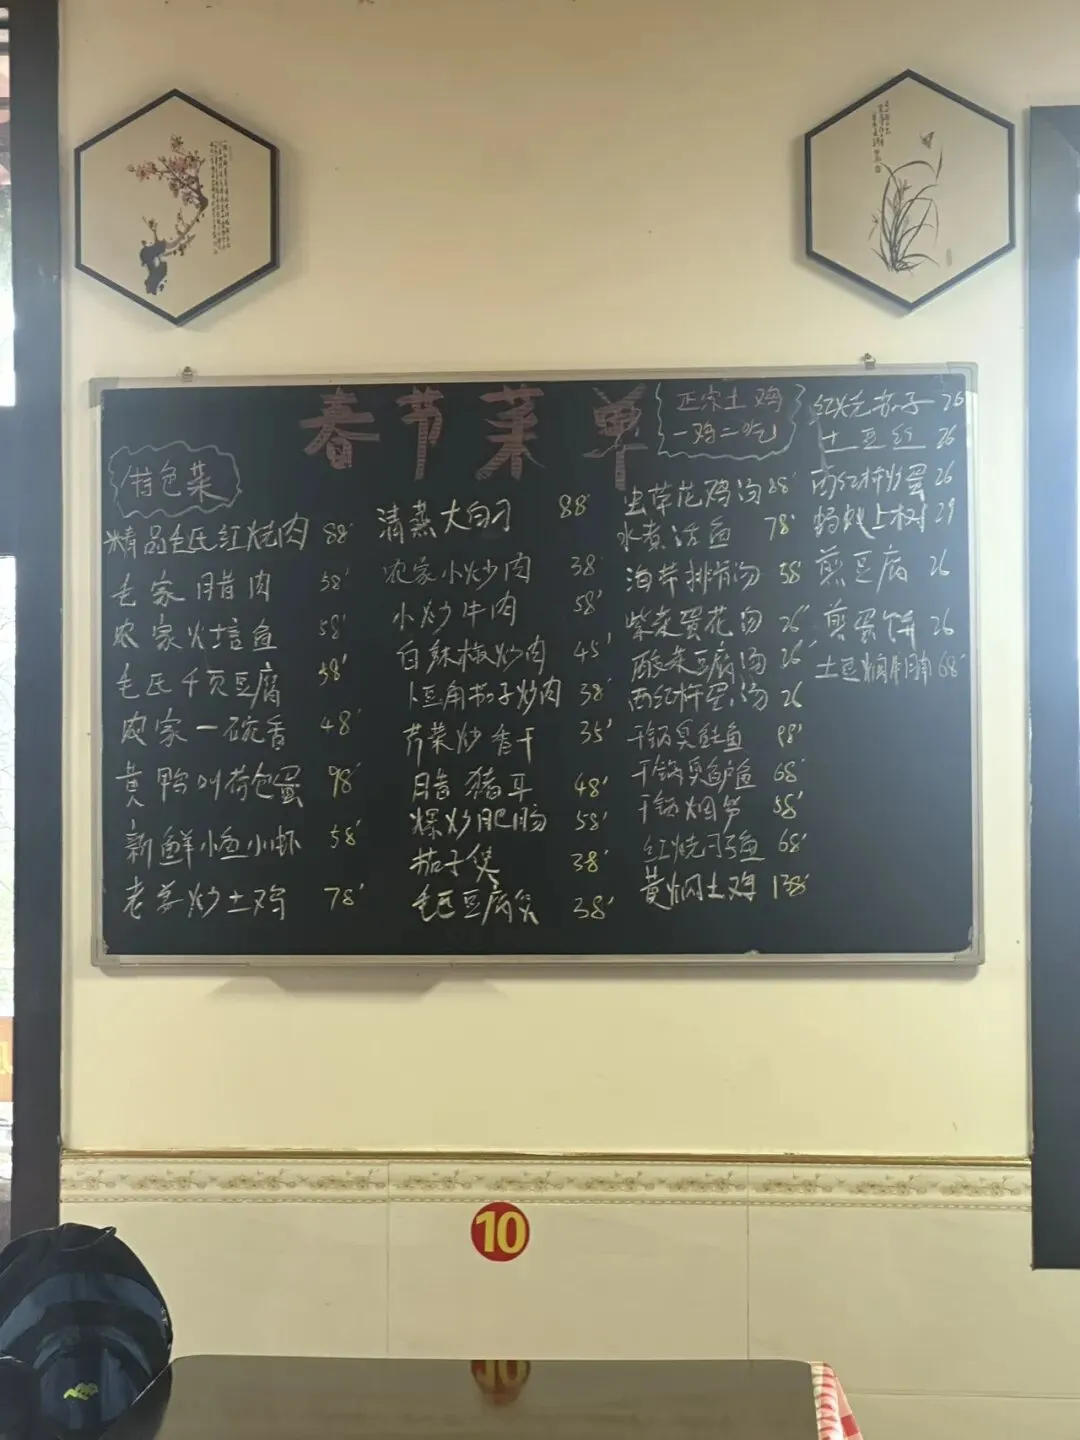 春节菜单
特色菜
精品毛氏红烧肉 88
毛家腊肉 58
农家火焙鱼 58
毛氏千页豆腐 38
农家一碗香 48
黄鸭叫荷包蛋 98
新鲜小鱼小虾 58
老姜炒土鸡 78
清蒸大白刁 88
农家小炒肉 38
小炒牛肉 58
白辣椒炒肉 45
豆角茄子炒肉 38
芹菜炒香干 35
腊猪耳 48
爆炒肥肠 58
茄子煲 38
毛氏豆腐煲 38
正宗土鸡
一鸡二吃
虫草花鸡汤 28
水煮活鱼 78
海带排骨汤 58
紫菜蛋花汤 26
酸菜豆腐汤 26
西红柿蛋汤 26
干锅臭鳜鱼 98
干锅臭鲈鱼 68
干锅烟笋 58
红烧刁子鱼 68
黄焖土鸡 138
红烧茄子 26
土豆丝 26
西红柿炒蛋 26
蚂蚁上树 29
煎豆腐 26
煎蛋饼 26
土豆焖牛腩 68
10